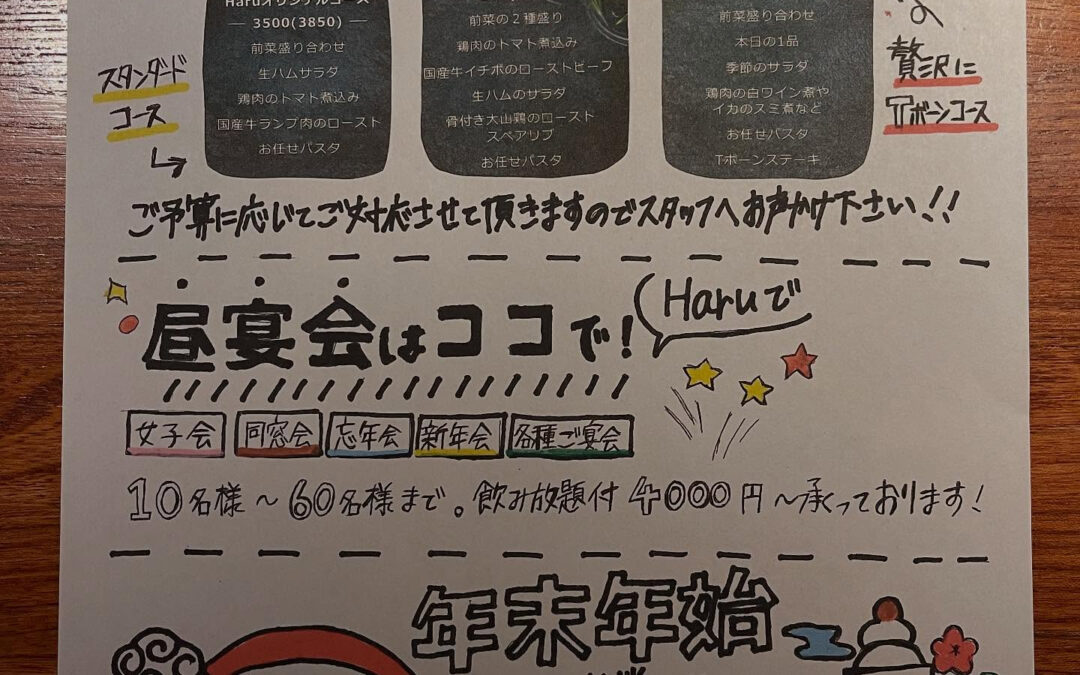 Haruオリジナルコース
3500(3850)
前菜盛り合わせ
生ハムサラダ
鶏肉のトマト煮込み
国産牛ランプ肉のロースト
お任せパスタ
前菜の2種盛り
鶏肉のトマト煮込み
国産牛イチボのローストビーフ
生ハムのサラダ
骨付き大山鶏のロースト
スペアリブ
お任せパスタ
前菜盛り合わせ
本日の1品
季節のサラダ
鶏肉の白ワイン煮や
イカのスミ煮など
お任せパスタ
Tボーンステーキ
スタンダード
コース
贅沢に
Tボーンコース
ご予算に応じてご対応させて頂きますのでスタッフへお声かけ下さい!!
昼宴会はココで!
Haruで
女子会 同窓会 忘年会 新年会 各種ご宴会
10名様～60名様まで。飲み放題付4000円～承っております!
年末年始